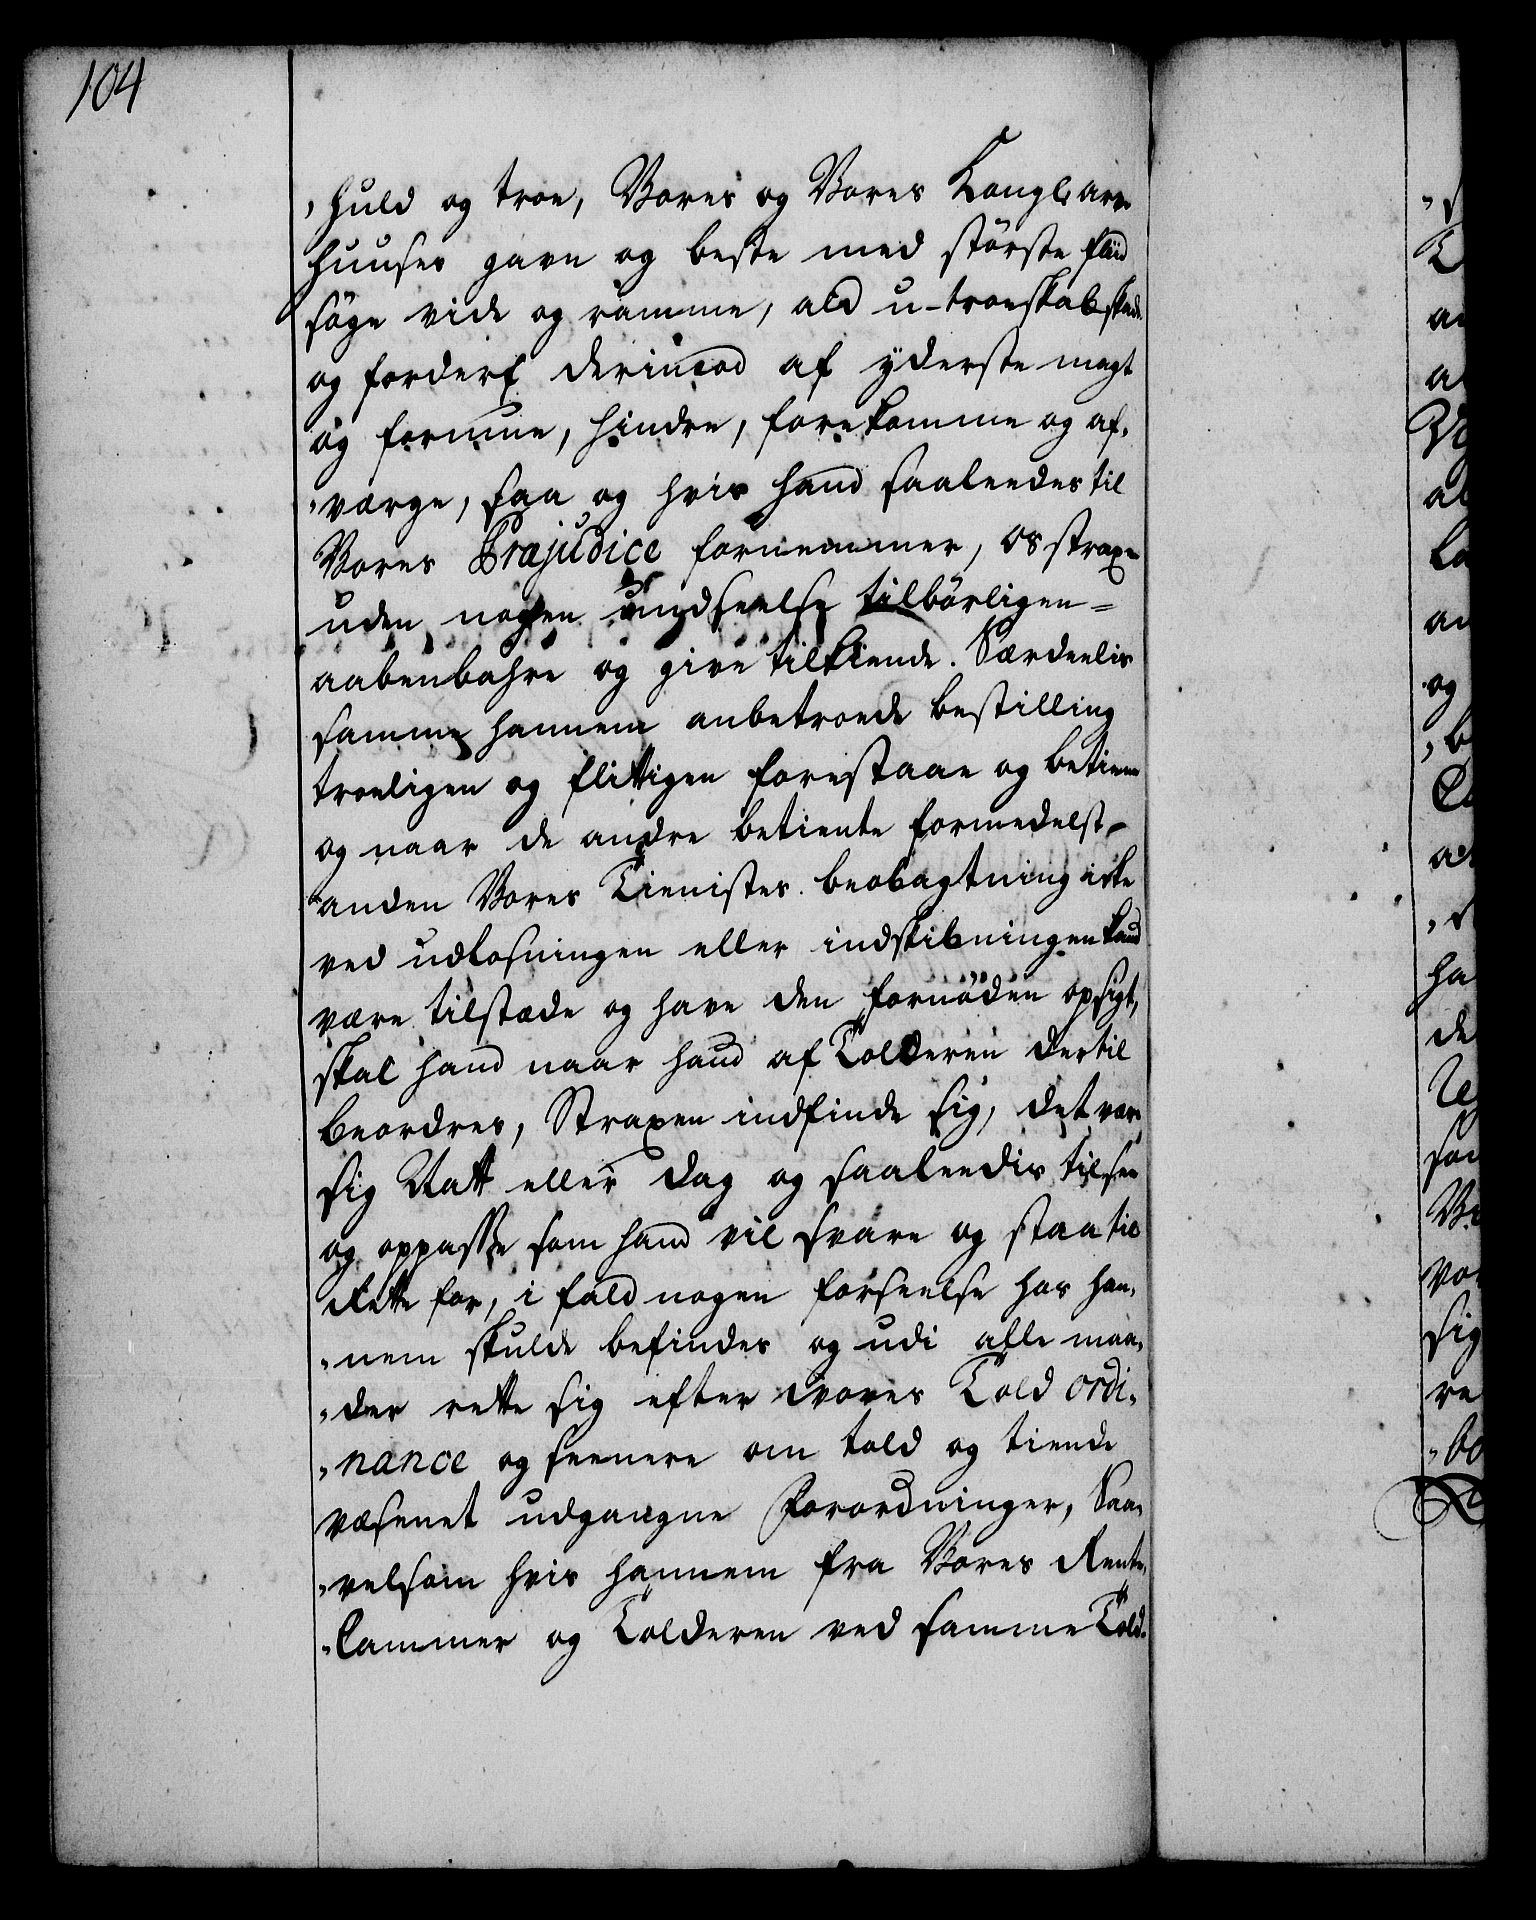 104
huld og troe, Vores og Vores Kongl: arve
huuses gavn og beste med største fliid
søge vide og ramme, ald u-troeskab skade
og forderf derimod af yderste magt
og formue, hindre, forekomme og af-
"værge, saa og hvis hand saaleedes til
Vores Præjudice fornemmer, os straxe
uden nogen undseelse tilbørligen =
aabenbahre og give tilkiende. Særdeelis
samme hannem anbetroede bestilling
troeligen og flittigen forestaae og betiene
og naar de andre betiente formedelst
anden Vores Tienistes beobagtning icke
ved udlosningen eller indskibningen kand
være tilstæde og have den fornøden opsigt,
skal hand naar hand af Tolderen dertil
beordres, Straxen indfinde sig, det være
sig Natt eller Dag og saaleedis tilsee
og oppasse som hand vil svare og staa til
Rette for, i fald nogen forseelse hos han-
"nem skulde befindes og udi alle maa-
"der rette sig efter Vores Told Ordi-
"nance og seenere om told og tiende
væsenet udgangne Forordninger, Saa-
"velsom hvis hannem fra Vores Rente-
"Cammer og Tolderen ved samme Told-